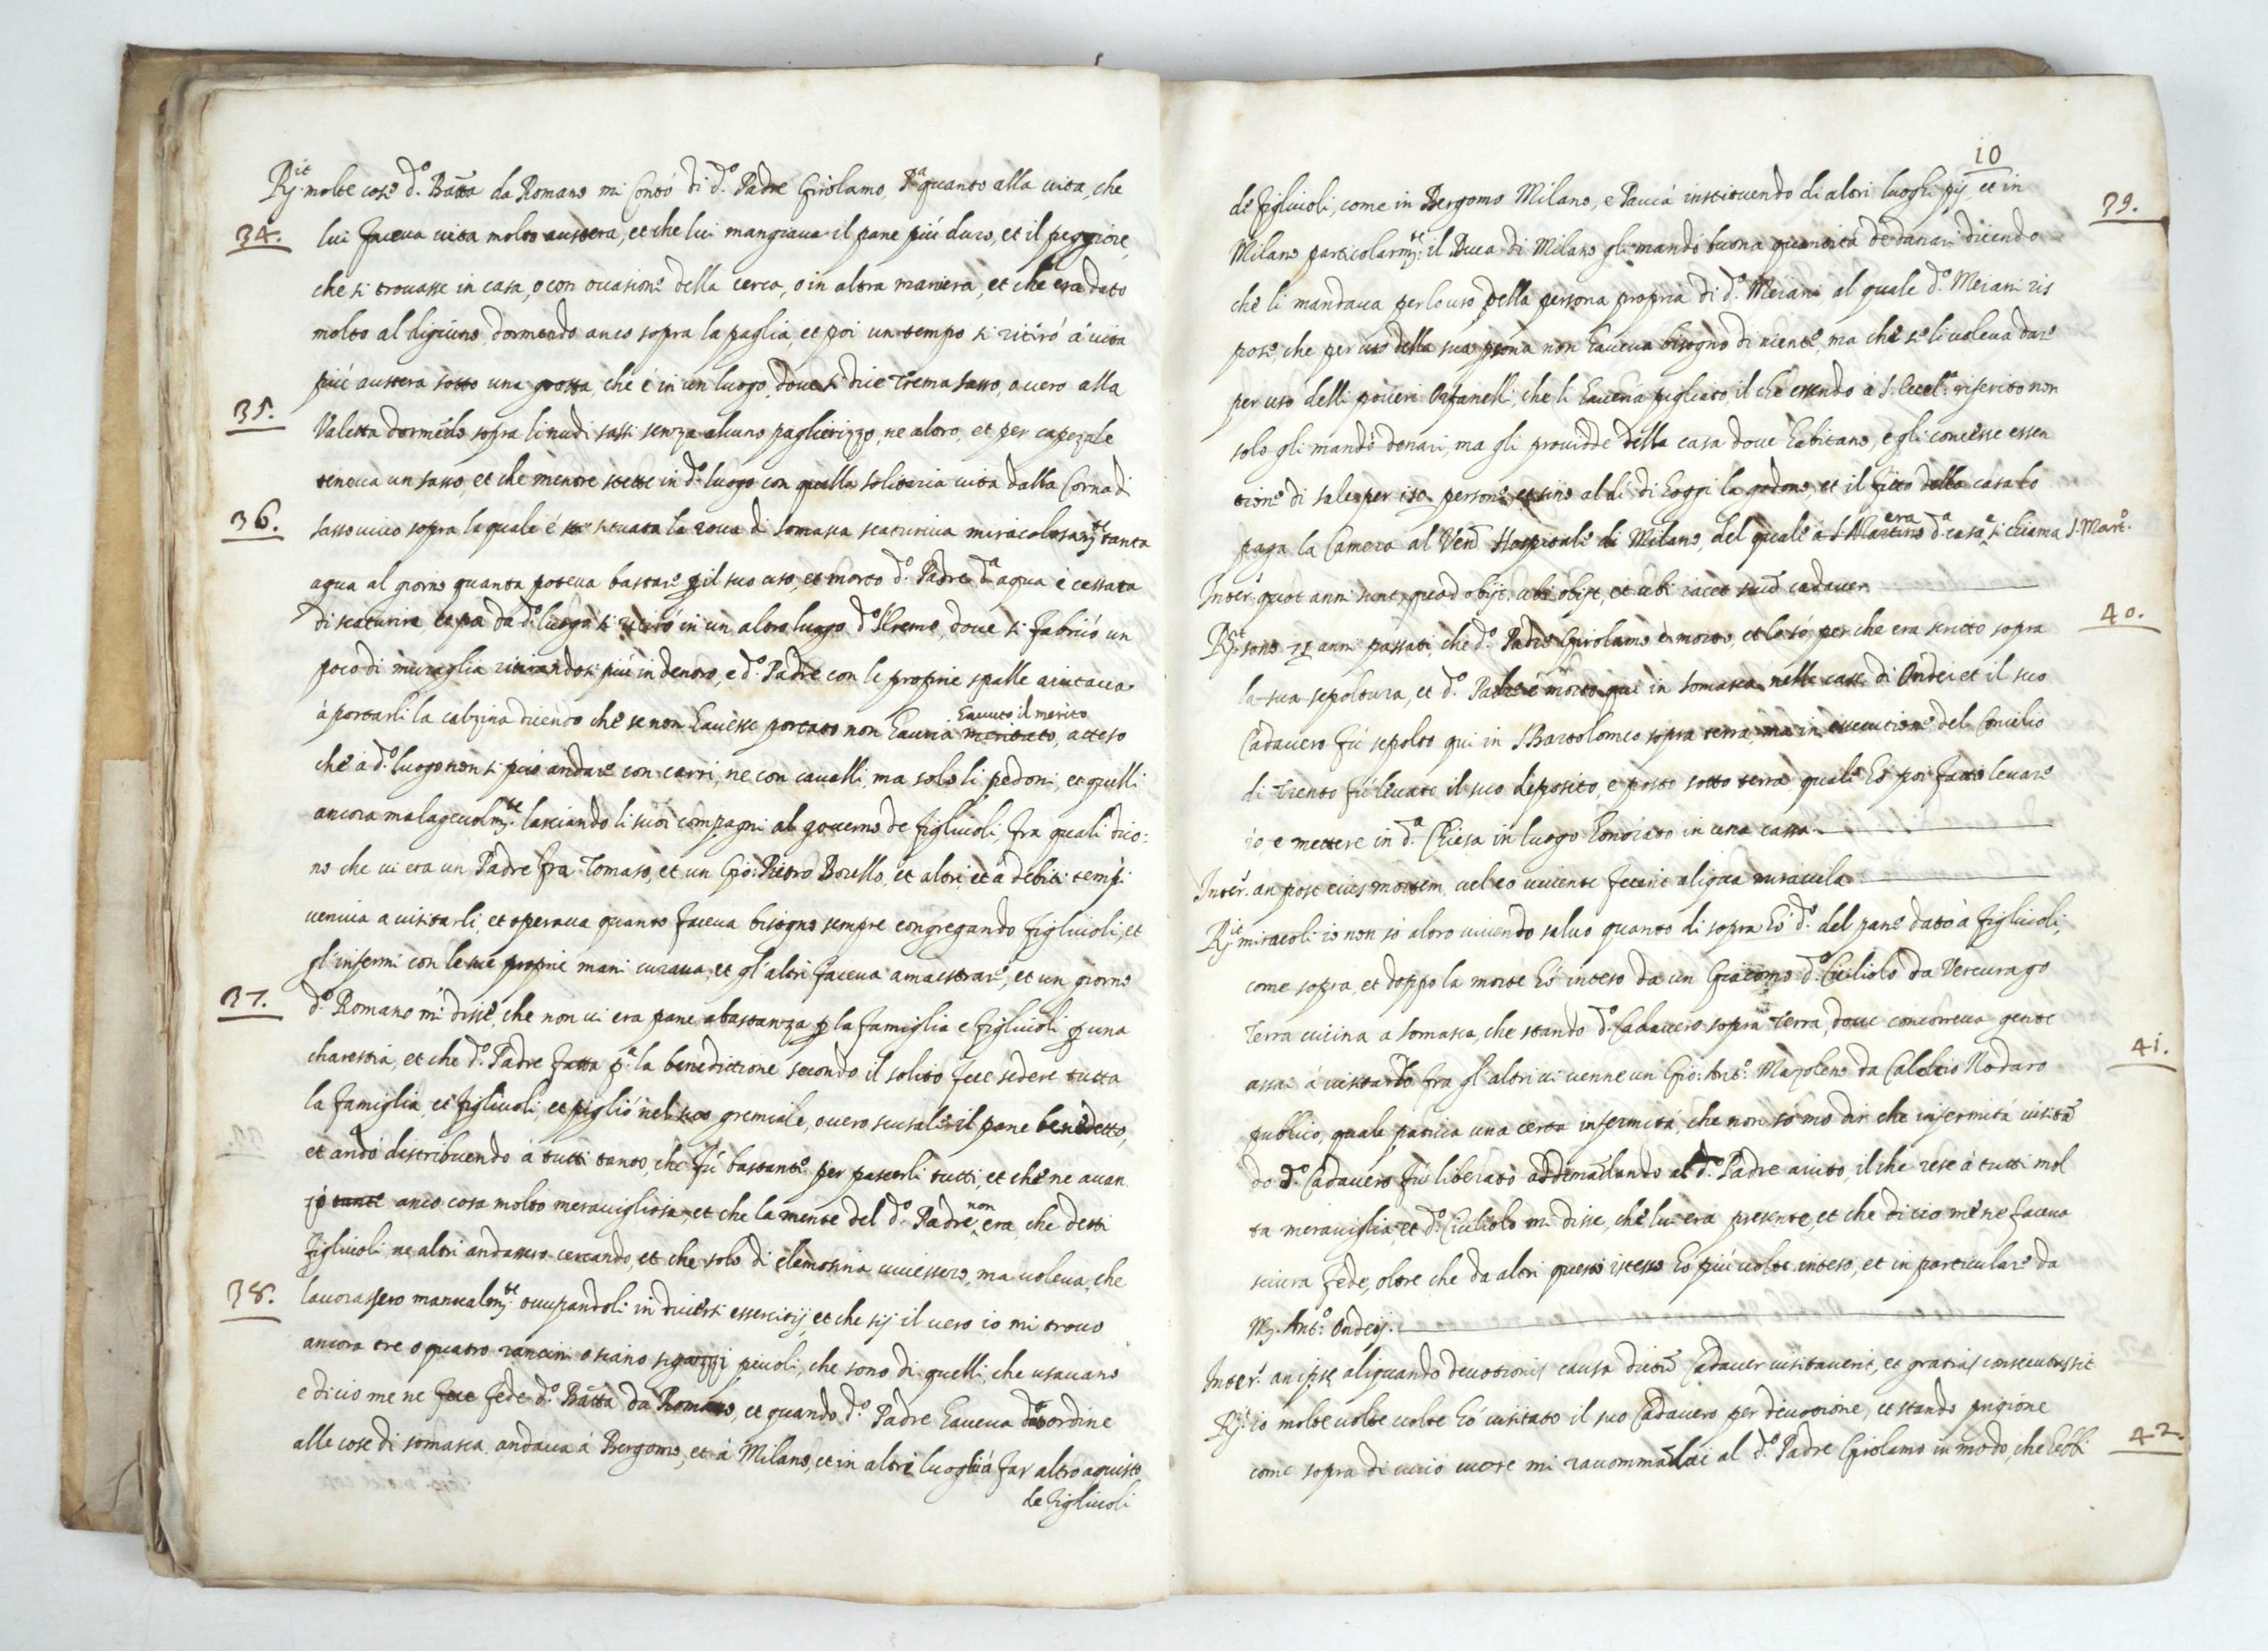 Rxit. molte cose d.o Batta da Romano mi contò di d.o Padre Girolamo, P.a quanto alla vita, che
34. lui faceva vita molto austera, et che lui mangiava il pane più duro, et il peggiore,
che si trovasse in casa, o con occasione della cerca, o in altra maniera, et che era dato
molto al digiuno, dormendo anco sopra la paglia, et poi un tempo si ritirò à vita
più austera sotto una grotta, che è in un luogo, dove si dice Trema sasso, overo alla
35. Valetta dormēdo sopra li nudi sassi senza alcuno paglierizzo, ne altro, et per capezale
teneva un sasso, et che mentre stette in d.o luogo con quella solitaria vita dalla Corna di
36. sasso vivo sopra la quale é situata la roca di Somasca scaturiva miracolosam.te tanta
aqua al giorno quanta poteva bastare p il suo uso, et morto d.o Padre d.a aqua è cessata
di scaturire, et poi da d.o luogo si ritirò in un altro luogo d.o l'Eremo, dove si fabricò un
poco di muraglia ritirandosi più in dentro, e d.o Padre con le proprie spalle aiutava
à portarli la calzina dicendo che se non havesse portato non havria meritato havuto il merito, atteso
che à d.o luogo non si può andare con carri, ne con cavalli, ma solo li pedoni, et quelli
ancora malagevolm.te lasciando li suoi compagni al governo de figlivoli, fra quali dico:
no che vi era un Padre fra Tomaso, et un Gio: Pietro Borello, et altri, et à debiti tempi
veniva a visitarli, et operava quanto faceva bisogno sempre congregando figlivoli, et
gl'infermi con le sue proprie mani curava, et gl'altri faceva amaestrare, et un giorno
37. d.o Romano mi disse, che non vi era pane abastanza p la famiglia e figlivoli p una
charestia, et che d.o Padre fatta p.a la benedittione secondo il solito fece sedere tutta
la famiglia, et figlivoli, et pigliò nel suo gremiale, overo scusale il pane benedetto,
et andò distribuendo à tutti tanto che fù bastante per pascerli tutti, et che ne avan
zò tanto anco cosa molto meravigliosa, et che la mente del d.o Padre non era, che detti
figlivoli, ne altri andassero cercando, et che solo di elemosina vivessero, ma voleva, che
38. lavorassero manualm.te occupandoli in diversi essercitij, et che sij il vero io mi trovo
ancora tre o quatro rancini o siano picoli, che sono di quelli, che usavano
e di cio me ne fece fede d.o Batta da Romano, et quando d.o Padre haveva dato ordine
alle cose di somasca andava à Bergomo, et à Milano, et in altri luoghi à far altro aquisto
de figlivoli
10
de figlivoli, come in Bergomo Milano, e Pavia instituendo di altri luoghi pij, et in 39.
Milano particolarm.te il Duca di Milano gli mandò buona quantità de danari dicendo
che li mandava per lo uso della persona propria di d.o Meiani al quale d.o Meiani ris
pose, che per uso della sua psona non haveva bisogno di niente, ma che se li voleva dare
per uso delli poveri Orfanelli, che li haveria pigliato, il che essendo à S. Eccel.a riferito non
solo gli mandò denari, ma gli providde della casa dove habitano, e gli concesse essen
tione di sale per 150 persone, et sino al dì di hoggi la godono, et il fitto della casa lo
paga la Camera al Vend Hospitale di Milano, del quale era d.a casa, e si chiama S. Mart.o
Inter. quot anni sunt, quod obijt, ubi obijt, et ubi iacet suū cadaver.
Rxit sono anni passati, che d.o Padre Girolamo è morto, et lo sò, perche era scritto sopra 40.
la sua sepoltura, et d.o Padre è morto qui in Somasca nelle case di Ondei et il suo
Cadavero fù sepolto qui in S Bartolomeo sopra terra, ma in essecutione del Concilio
di Trento fù levato il suo deposito, e posto sotto terra quale hò poi fatto levare
io e mettere in d.a Chiesa in luogo honorato in una cassa.
Inter. an post eius mortem, vel eo vivente fecerit aliqua miracula.
Rxit miracoli io non sò altro vivendo salvo quanto di sopra hò d.o del pane dato à figlivoli,
come sopra, et doppo la morte hò inteso da un Giacomo d.o Ciciliolo da Vercurago
Terra vicina a Somasca, che stando d.o Cadavero sopra Terra, dove concorreva gente 41.
assai à visitarlo fra gl'altri vi venne un Gio: Ant.o Mazoleno da Calolcio Nodaro
publico, quale pativa una certa infermità, che non sò mo dir che infermità visitā
do d.o Cadavero fù liberato addimādando al d.o Padre aiuto, il che rese à tutti mol
ta meraviglia, et d.o Ciciliolo mi disse, che lui era presente, et che di cio me ne faceva
sicura fede, oltre che da altri questo istesso hò più volte inteso, et in particulare da
M. Ant.o Ondeij.
Inter. an ipse aliquando devotionis causa dictū Cadaver visitaverit, et gratias consecutus sit.
Rxit io molte volte volte hò visitato il suo Cadavero per divotione, et stando prigione 42.
come sopra di vivo cuore mi racommādai al d.o Padre Girolamo in modo, che hebbi